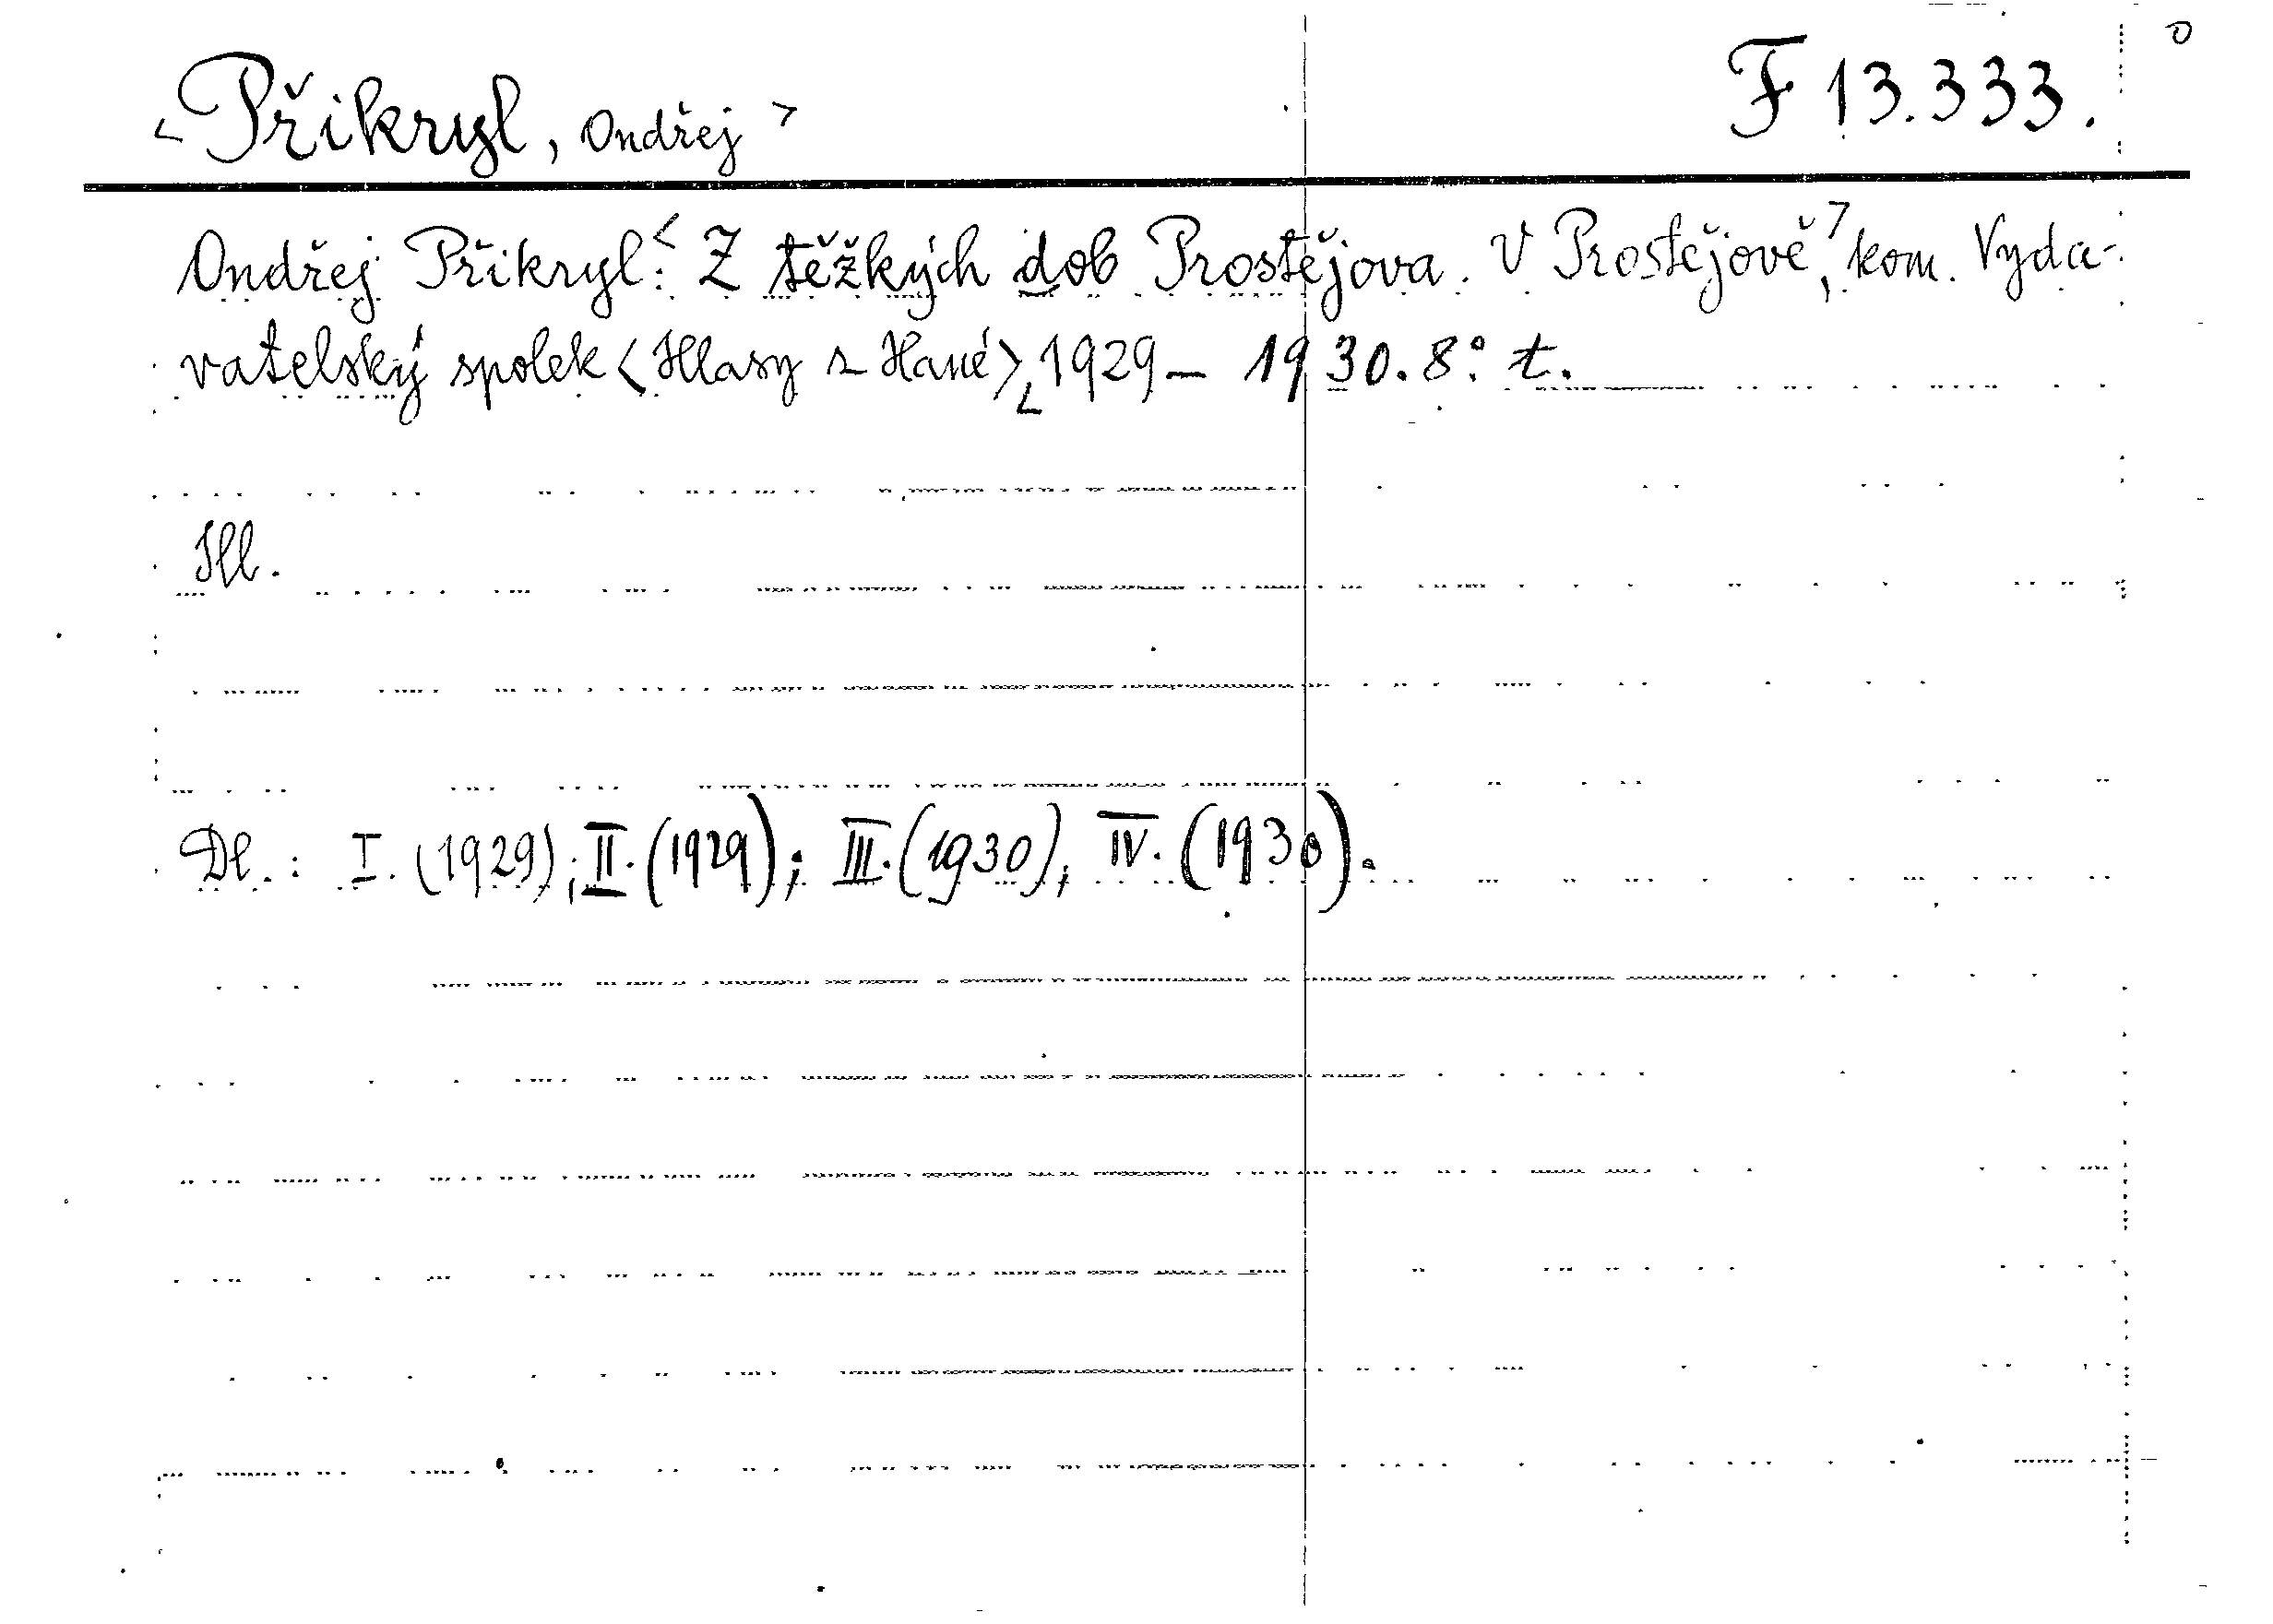 <Přikryl, Ondřej> F 13.333. o
Ondřej Přikryl:< Z těžkých dob Prostějova. V Prostějově,> kom. Vyda-
vatelský spolek <Hlasy z Hané>, <1929- 1930. 8°. t.
Ill.
Dl.: I. (1929); II. (1929); III. (1930); IV. (1930).